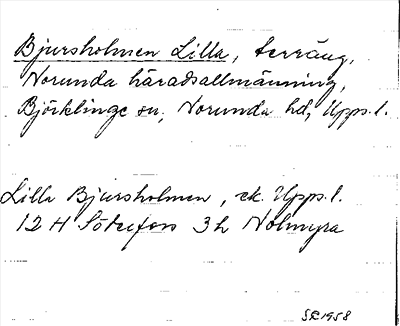 Bjursholmen Lilla, terräng,
Norunda häradsallmänning,
Björklinge sn, Norunda hd, Upps. l.
Lilla Bjursholmen, ek. Upps. l.
12 H Söderfors 3h Nolmyra
SR 1958